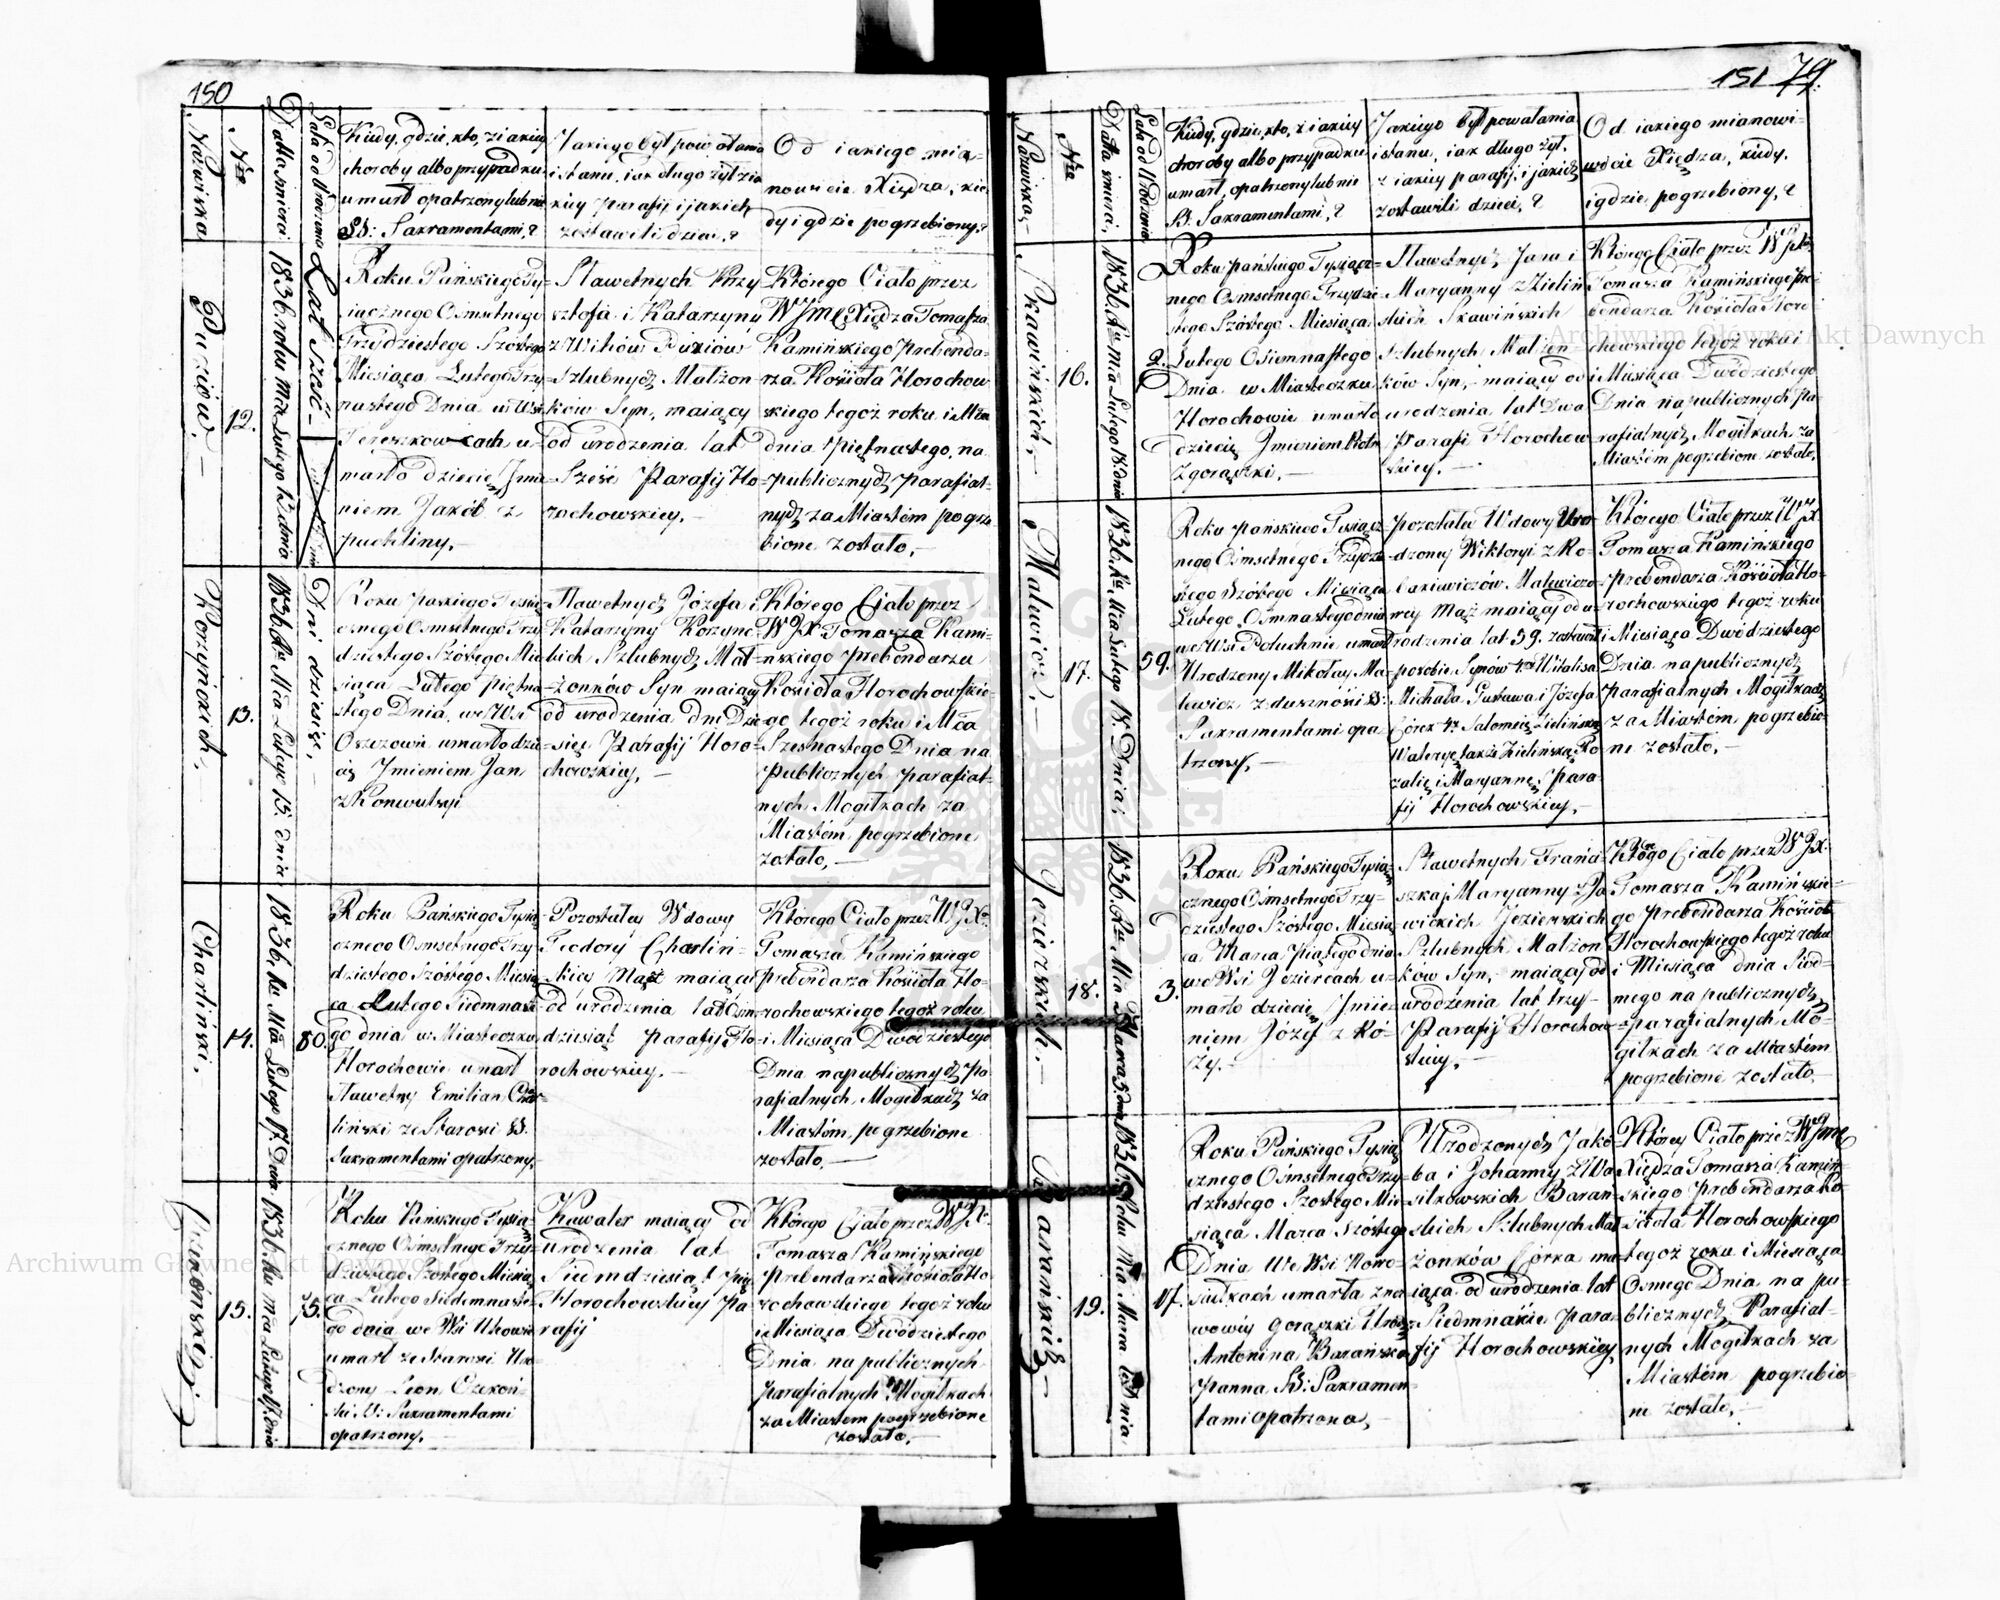 150
Nazwiska
Nro
Datta śmierci
Lata od Urodzenia
Kiedy, gdzie, kto, z iakiey
choroby albo przypadku
umarł opatrzony lub nie
SS: Sakramentami, ?
Jakiego był powołania
i stanu, iak długo żył z ia
kiey Parafij i jakich
zostawili dzieci, ?
Od iakiego mia-
nowicie Xiędza, kie
dy i gdzie pogrzebiony, ?
12.
1836. roku Mca Lutego 13. dnia
Lat Sześć
Roku Pańskiego Ty-
siącznego Ośmsetnego
Trzydziestego Szóstego
Miesiąca Lutego Trzy-
nastego Dnia w Wsi
Tereszkowcach u-
marło dziecie Jmie-
niem Jakób z
puchliny. —
Sławetnych Krzy-
sztofa i Katarzyny
Szlubnych Małżon-
ków Syn, maiący
od urodzenia lat
Sześć Parafij Ho-
rochowskiey. —
Którego Ciało przez
WJMC Xiędza Tomasza
Kamińskiego Prebenda-
rza Kościoła Horochow
skiego tegoż roku i Mca
dnia Piętnastego, na
publicznych Parafial-
nych za Miastem pogrze
bione zostało, —
Korzynickich. —
13.
1836. Ru Mca Lutego 15. dnia
Dni dziesięć, —
Roku Pańskiego Tysią
cznego Ośmsetnego Trzy
dziestego Szóstego Mie
siąca Lutego Piętna
stego Dnia, we Wsi
umarło dzie
cię Jmieniem Jan
z Konwulsyi
Sławetnych Józefa i
Katarzyny Korzync-
kich Szlubnych Mał-
żonków Syn maiący
od urodzenia dni Dzie
sięć Parafij Horo-
chowskiey, —
Którego Ciało przez
WJX Tomasza Kami-
ńskiego Prebendarza
Kościoła Horochowskie-
go tegoż roku i Mca
Szesnastego Dnia na
Publicznych parafial-
nych Mogiłkach za
Miastem pogrzebione
zostało, —
Charliński.
14.
1836. Ru Mca Lutego 17. Dnia
80.
Roku Pańskiego Tysią
cznego Ośmsetnego Trzy
dziestego Szóstego Miesią
ca Lutego Siedmnaste
go dnia w Miasteczku
Horochowie umarł
Sławetny Emilian Char
liński ze Starości SS.
Sakramentami opatrzony,
Pozostałey Wdowy
Teodory Charliń-
skiey Mąż maiący
od urodzenia lat Ośm
dziesiąt Parafij Ho
rochowskiey. —
Którego Ciało przez WJX
Tomasza Kamińskiego
Prebendarza Kościoła Ho-
rochowskiego tegoż roku
i Miesiąca Dwódziestego
Dnia na publicznych pa
rafialnych Mogiłkach za
Miastem, pogrzebione
zostało, —
15.
1836. Ru Mca Lutego 17. dnia
75.
Roku Pańskiego Tysią
cznego Ośmsetnego Trzy
dziestego Szóstego Miesią
ca Lutego Siedmnaste
go dnia we Wsi
umarł ze Starości Uro-
dzony Leon
ski SS: Sakramentami
opatrzony.
Kawaler maiący od
urodzenia lat
Siedmdziesiąt Pięć
Horochowskiey Pa
rafij
Którego Ciało przez WJX.
Tomasza Kamińskiego
Prebendarza Kościoła Ho
rochowskiego tegoż roku
i Miesiąca Dwódziestego
Dnia na publicznych
Parafialnych Mogiłkach
za Miastem pogrzebione
zostało. —
151 79.
Nazwiska
Nro
Datta śmierci,
Lata od Urodzenia
Kiedy, gdzie, kto, z iakiey
choroby albo przypadku
umarł, opatrzony lub nie
SS: Sakramentami, ?
Jakiego był powołania
i stanu, iak długo żył,
z iakiey parafij i jakich
zostawili dzieci, ?
Od iakiego mianowi-
wicie Xiędza, kiedy
i gdzie pogrzebiony, ?
Skawińskich, —
16.
1836. Ru Mca Lutego 18. dnia
2.
Roku Pańskiego Tysiącz-
nego Ośmsetnego Trzydzie
stego Szóstego Miesiąca
Lutego Osiemnastego
Dnia w Miasteczku
Horochowie umarło
dziecię Jmieniem Piotr
z gorączki, —
Sławetnych Jana i
Maryanny z Zieliń
skich Skawińskich
Szlubnych Małżon-
ków Syn, maiący od
urodzenia lat Dwa
Parafij Horochow
skiey. —
Którego Ciało przez WJX
Tomasza Kamińskiego Pre-
bendarza Kościoła Horo
chowskiego tegoż roku i
Miesiąca Dwódziestego
Dnia na publicznych pa-
rafialnych Mogiłkach za
Miastem pogrzebione zostało,
Malewicz, —
17.
1836. Ru Mca Lutego 18. Dnia
59.
Roku Pańskiego Tysiącz
nego Ośmsetnego Trzydzie
stego Szóstego Miesiąca
Lutego Ośmnastego dnia
we Wsi Połuchnie umarł
Urodzony Mikołay Ma-
lewicz z duszności SS:
Sakramentami opa
trzony, —
Pozostałey Wdowy Uro-
dzoney Wiktoryi z Ko-
Malewiczo-
wey Mąż maiący od u-
rodzenia lat 59. zostawił
po sobie Synów 4ch Witalisa
Michała Gustawa i Józefa
Córek 4ry Salomeię Zielińską
Waleryę także Zielińską, Ro
zalię i Maryannę, para-
fij Horochowskiey, —
Którego Ciało przez WJX
Tomasza Kamińskiego
Prebendarza Kościoła Ho-
rochowskiego tegoż roku
i Miesiąca Dwódziestego
Dnia na publicznych
parafialnych Mogiłkach
za Miastem pogrzebio
ne zostało, —
Jezierskich. —
18.
1836. Ru Mca Marca 5. dnia
3.
Roku Pańskiego Tysią
cznego Ośmsetnego Trzy-
dziestego Szóstego Miesią
ca Marca Piątego dnia
we Wsi Jeziercach u-
marło dziecię Jmie-
niem Józef z Ró-
ży. —
Sławetnych Frańci
szka i Maryanny z Ja
wickich Jezierskich
Szlubnych Małżon
ków Syn, — maiący od
urodzenia lat trzy —
Parafij Horochow-
skiey. —
Którego Ciało przez WJX.
Tomasza Kamińskie-
go Prebendarza Kościoła
Horochowskiego tegoż roku
i Miesiąca dnia Siód-
mego na publicznych
parafialnych Mo-
giłkach za Miastem
pogrzebione zostało, —
Barańskich —
19.
1836. Roku Mca Marca 6. Dnia
17.
Roku Pańskiego Tysią
cznego Ośmsetnego Trzy-
dziestego Szóstego Mie-
siąca Marca Szóstego
Dnia We Wsi Nowo
siułkach umarła z ner
wowey gorączki Urodz
Antonina Barańska
Panna, SS: Sakramen-
tami opatrzona, —
Urodzonych Jakó-
ba i Johanny z Wa
silkowskich Barań-
skich Szlubnych Mał
żonków Córka ma-
iąca od urodzenia lat
Siedmnaście Para-
fij Horochowskiey,
Którey Ciało przez WJmc
Xiędza Tomasza Kamiń-
skiego Prebendarza Ko-
ścioła Horochowskiego
tegoż roku i Miesiąca
Osmego Dnia na pu-
blicznych Parafial-
nych Mogiłkach za
Miastem pogrzebio-
ne zostało, —
Archiwum Główne Akt Dawnych
Archiwum Główne Akt Dawnych